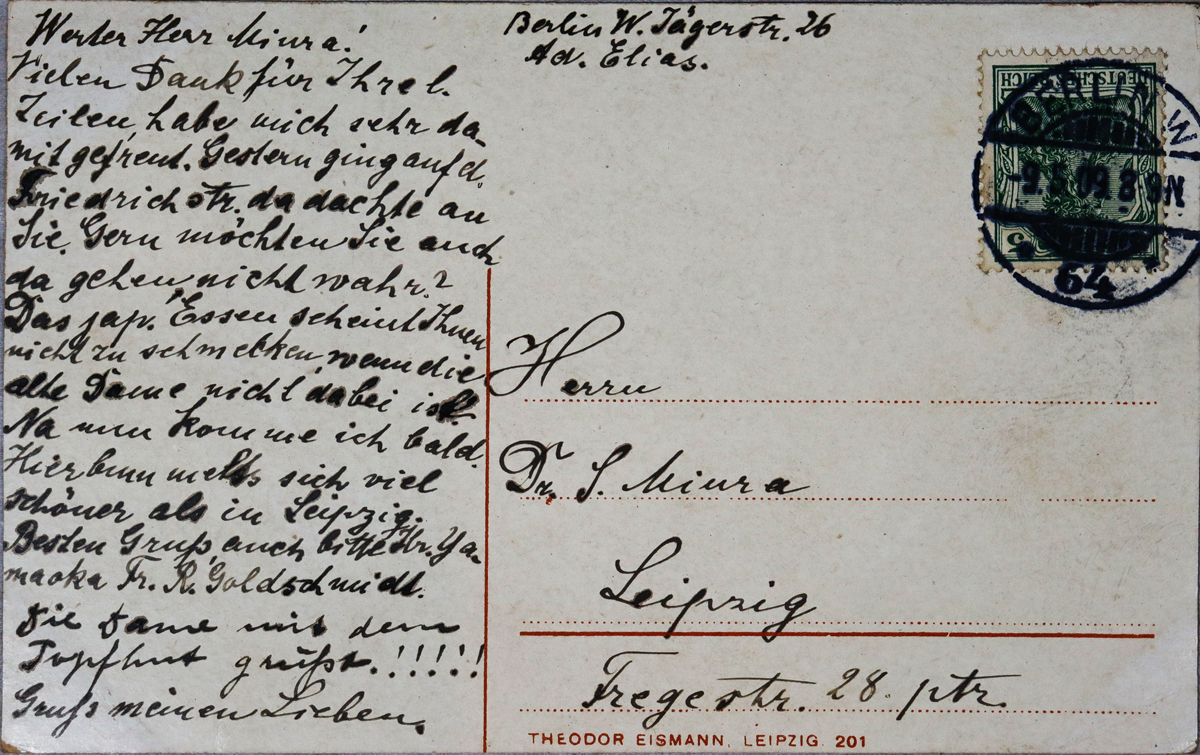 Werter Herr Miura!
Vielen Dank für Ihre l.
Zeilen, habe mich sehr da-
mit gefreut. Gestern ging auf d.
Friedrichstr. da dachte an
Sie. Gern möchten Sie auch
da gehen, nicht wahr?
Das jap. Essen scheint Ihnen
nicht zu schmecken, wenn die
alte Dame nicht dabei ist.
Na nun komme ich bald.
Hier bummelts sich viel
schöner als in Leipzig.
Besten Gruß auch bitte Hr. Ya-
maoka Fr. R. Goldschmidt.
Die Dame mit dem
Topfhut grüßt.!!!!!
Gruß meinen Lieben.
Berlin W. Jägerstr. 26
Ad. Elias.
DEUTSCHES REICH
5
BERLIN W
-9.5.09.8-9N
* 64 *
Herrn
Dr. S. Miura
Leipzig
Fregestr. 28. ptr.
THEODOR EISMANN, LEIPZIG 201